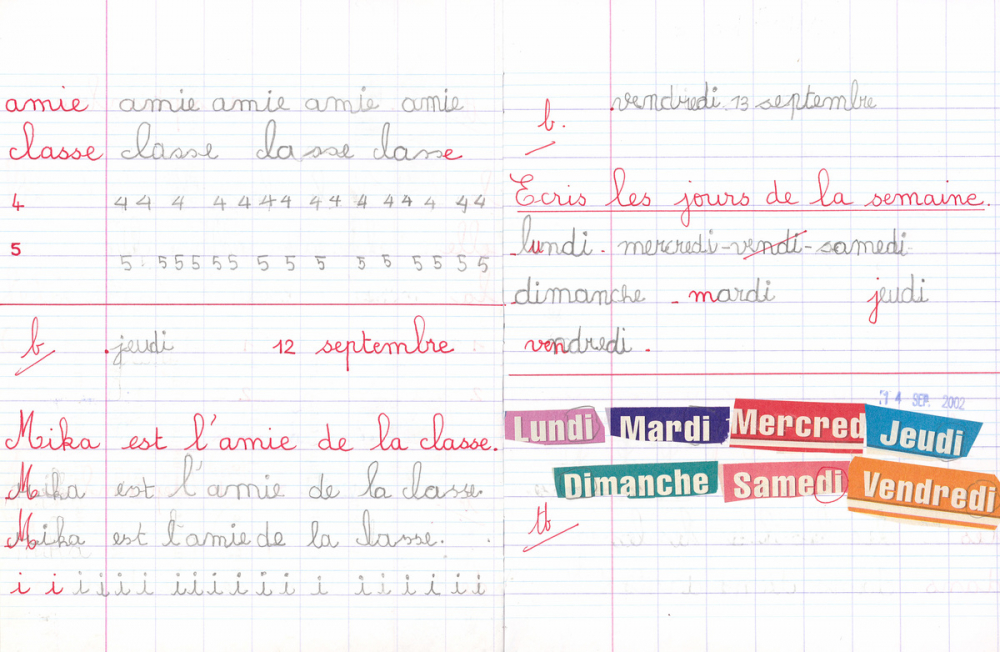 amie amie amie amie amie
classe classe classe classe
4 4 4 4 4 4 4 4 4 4 4 4 4 4 4 4
5 5 5 5 5 5 5 5 5 5 5 5 5 5 5
b jeudi 12 septembre
Mika est l'amie de la classe.
Mika est l'amie de la classe.
Mika est l'amie de la classe.
i i i i i i i i i i i i i i i i i i i
b. vendredi 13 septembre
Ecris les jours de la semaine.
lundi - mercredi - vendi - samedi
dimanche - mardi jeudi
vendredi.
14 SEP. 2002
Lundi Mardi Mercred Jeudi
Dimanche Samedi Vendredi
tb